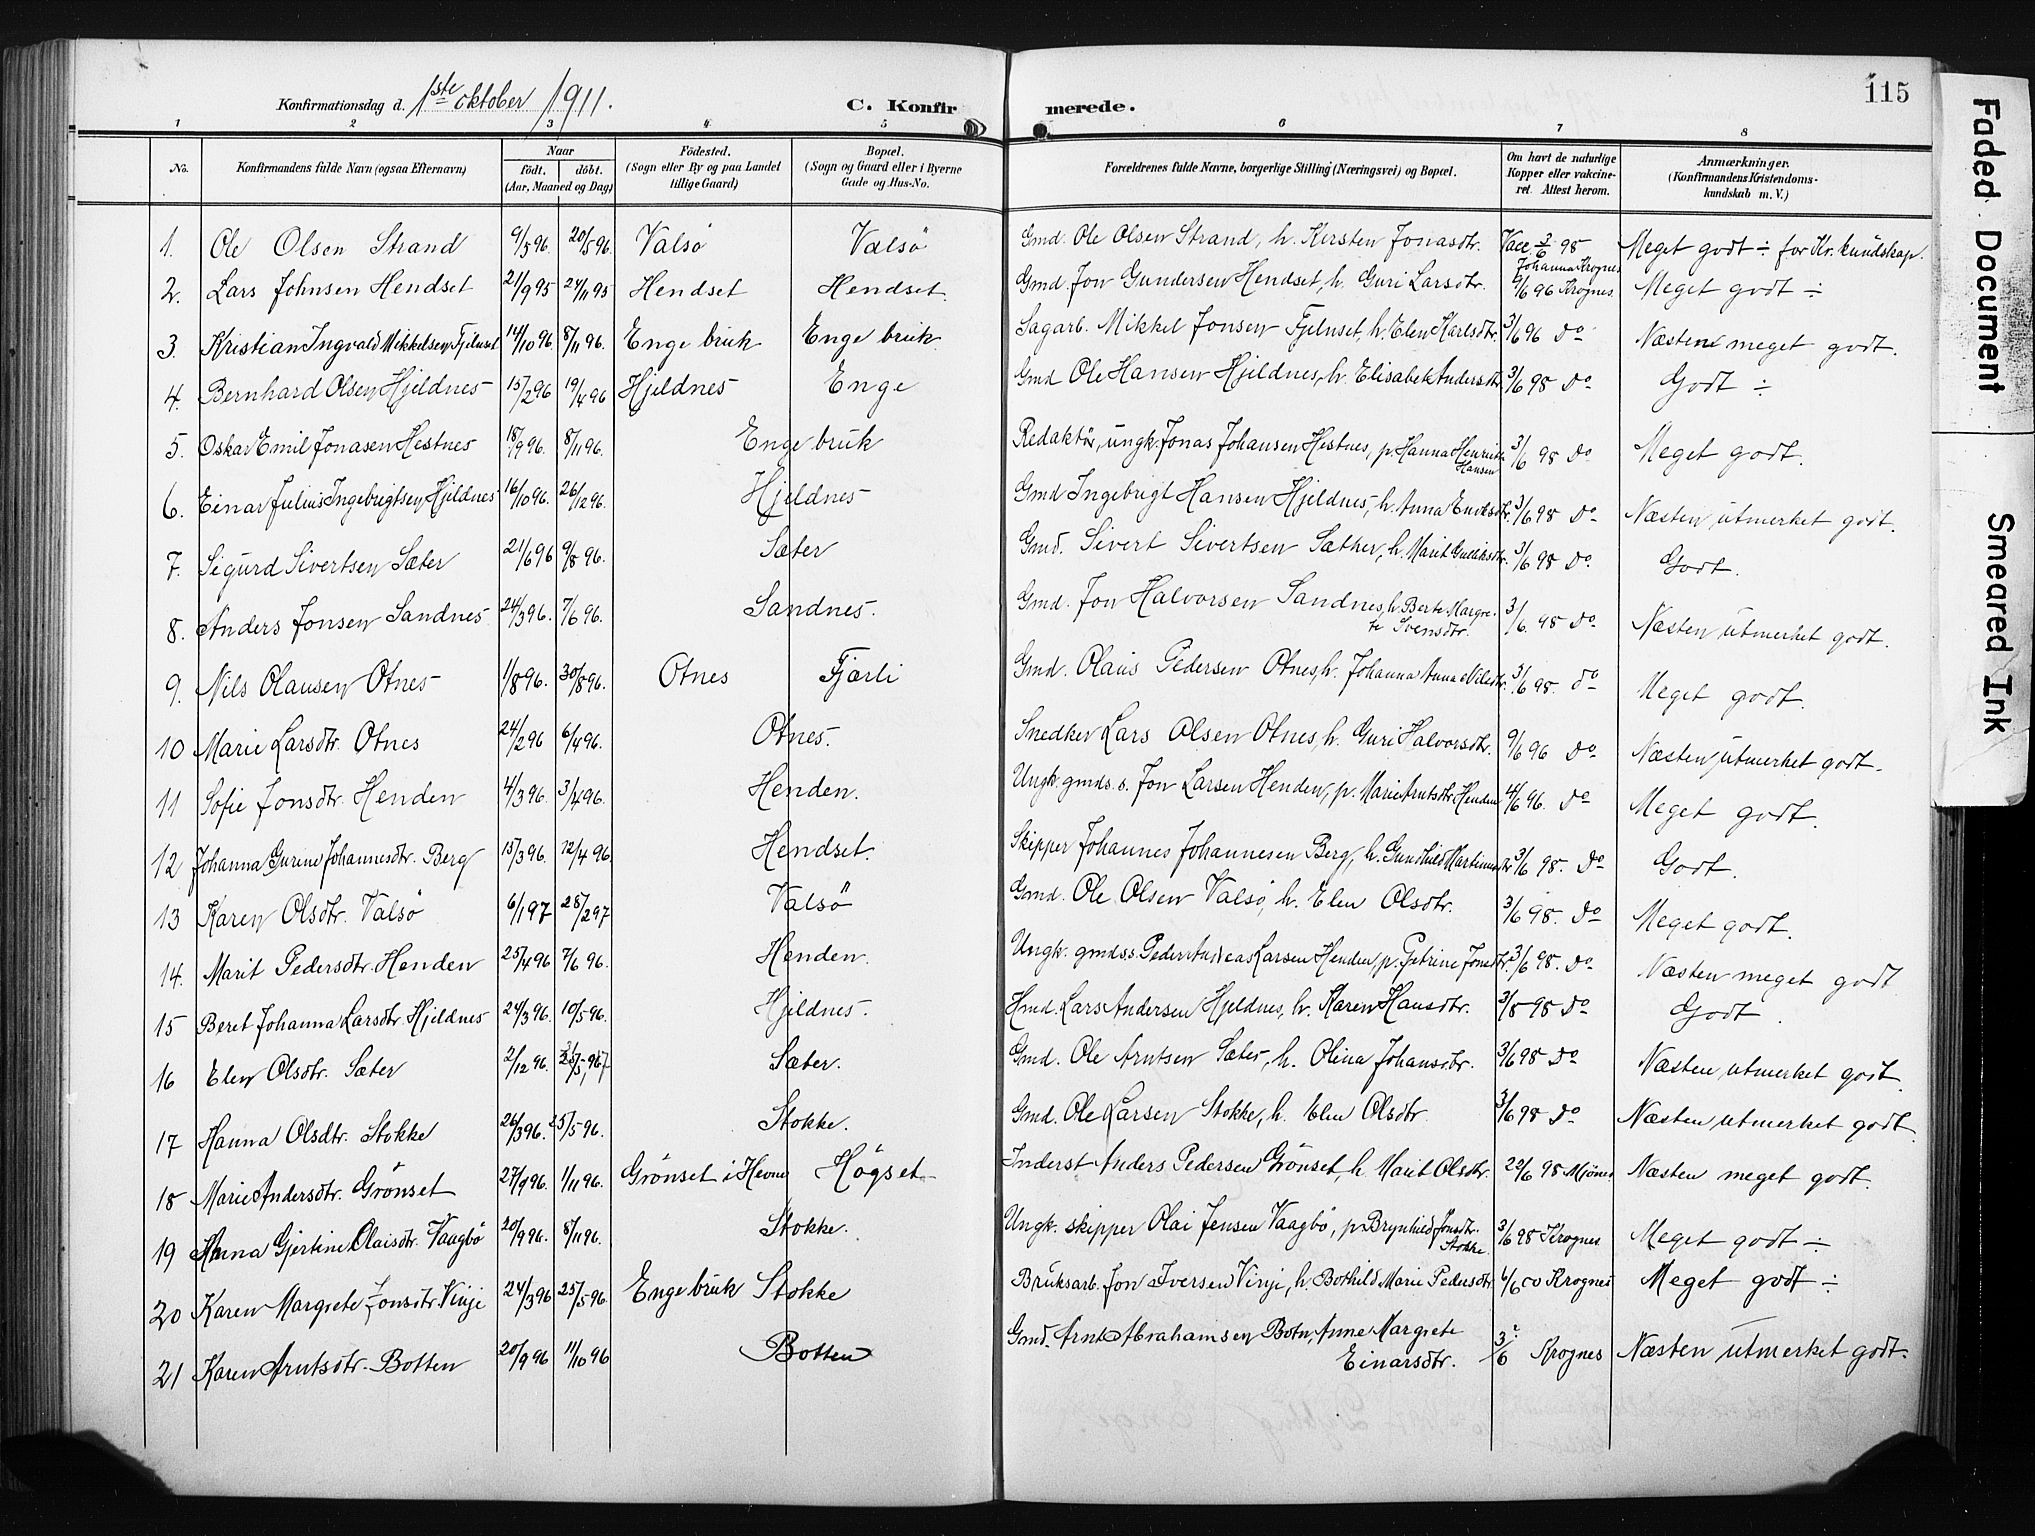 Konfirmationsdag d. 1ste oktober 1911. C. Konfirmerede. 115
1 2 3 4 5 6 7 8
No. Konfirmandens fulde Navn (ogsaa Efternavn) Naar født. døbt. (Aar, Maaned og Dag) Fødested. (Sogn eller By og paa Landet tillige Gaard) Bopæl. (Sogn og Gaard eller i Byerne Gade og Hus-No. Forældrenes fulde Navne, borgerlige Stilling (Næringsvei) og Bopæl. Om havt de naturlige Kopper eller vakcineret. Attest herom. Anmærkninger. (Konfirmandens Kristendomskundskab m. V.)
1. Ole Olsen Strand 9/5 96. 20/5 96. Valsö Valsö Gmd. Ole Olsen Strand, h. Kersten Jonasdtr. Vacc. 3/6 98 Meget godt ÷ for Kr. kundskap.
2. Lars Johnsen Hendset 21/9 95 24/11 95 Hendset Hendset Gmd. Jon Gundersen Hendset, h. Guri Larsdtr. Johanna Krognes 9/6 96 Krognes Meget godt ÷
3. Kristian Ingvald Mikkelsen Fjelnset 14/10 96. 8/11 96. Enge bruk Enge bruk. Sagarb. Mikkel Jonsen Fjelnset, h. Elen Karlsdtr. 3/6 96 do Næsten meget godt.
4. Bernhard Olsen Hjeldnes 15/2 96 19/4 96 Hjeldnes Enge Gmd Ole Hansen Hjeldnes, h. Elisabet Andersdtr. 3/6 98 do Godt ÷
5. Oskar Emil Jonasen Hestnes 18/9 96. 8/11 96. Enge bruk Redaktör, ungk. Jonas Johansen Hestnes, p. Hanna Hansen 3/6 98 do Meget godt.
6. Einar Julius Ingebrigtsen Hjeldnes 16/10 96. 26/12 96. Hjeldnes Gmd Ingebrigt Hansen Hjeldnes, h. Anna 3/6 98 do Næsten utmerket godt.
7. Sigurd Sivertsen Sæter 21/6 96 9/8 96. Sæter Gmd. Sivert Sivertsen Sæther, h. Marit 3/6 98 do. Godt.
8. Anders Jonsen Sandnes 24/3 96. 7/6 96. Sandnes. Gmd. Jon Halvorsen Sandnes, h. Berte Margrete Svensdtr. 3/6. 98 do Næsten utmerket godt.
9. Nils Olausen Otnes 1/8 96. 30/8 96. Otnes Fjærli Gmd. Olaus Pedersen Otnes, h. Johanna Anna Nilsdtr. 3/6 98. do Meget godt.
10 Marie Larsdtr. Otnes 24/2 96 6/4 96. Otnes. Snedker Lars Olsen Otnes, h. Guri Halvorsdtr. 9/6 96 do Næsten utmerket godt.
11 Sofie Jonsdtr. Henden 4/3 96. 3/4 96. Henden. Ungk. gmds. s. Jon Larsen Henden, p. Marie Arntsdtr. Henden 4/6 96. do Meget godt.
12 Johanna Gurine Johannesdtr. Berg 15/3 96. 12/4 96 Hendset. Skipper Johannes Johannesen Berg, h. Gundhild Martinusdtr 3/6 98. do Godt.
13 Karen Olsdtr. Valsö 6/1 97 28/2 97 Valsö Gmd. Ole Olsen Valsö, h. Elen Olsdtr. 3/6 98. do Meget godt.
14. Marit Pedersdtr. Henden 25/4 96 7/6 96. Henden. Ungk. gmds s. Peder Andreas Larsen Henden, p. Petrine Jonsdtr. 3/6 98. do Næsten meget godt
15 Beret Johanna Larsdtr. Hjeldnes 24/3 96. 10/5 96. Hjeldnes. Hmd. Lars Andersen Hjeldnes, h. Karen Hansdtr. 3/8 98 do Godt.
16 Elen Olsdtr. Sæter 2/12 96. Sæter. Gmd. Ole Arntsen Sæter, h. Olina Johansdtr. 3/6 98 do Næsten utmerket godt.
17 Hanna Olsdtr. Stokke 26/3 96. 25/5 96. Stokke. Gmd. Ole Larsen Stokke, h. Elen Olsdtr. 3/6 98 do Næsten utmerket godt.
18 Marie Andersdtr. Grönset 27/9 96. 1/11 96. Grönset i Hevne Högset Inderst Anders Pedersen Grönset, h. Marit Olsdtr. 20/6 98 Mjönes Næsten meget godt.
19 Anna Gjertine Olaisdtr. Vaagbö 20/9 96. 8/11 96. Stokke. Ungk. skipper Olai Jensen Vaagbö, p. Brynhild Jonsdtr. Stokke. 3/6 98 Krognes Meget godt ÷
20 Karen Margrete Jonsdtr. Vinje 24/3 96 25/5 96. Enge bruk Stokke Bruksarb. Jon Iversen Vinje, h. Bothild Marie Pedersdtr 4/6 00 Krognes Meget godt ÷
21 Karen Arntsdtr. Botten 20/9 96 11/10 96 Botten Gmd. Arnt Abrahamsen Botn, Anne Margrete Einarsdtr. 3/6 Krognes Næsten utmerket godt.
Faded Document
Smeared Ink